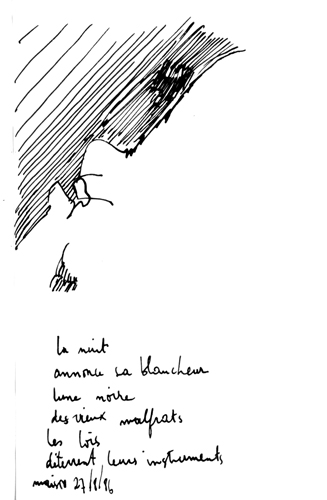 la nuit
annonce sa blancheur
lune noire
des vieux malfrats
les lois
déterrent leurs instruments
27/1/96